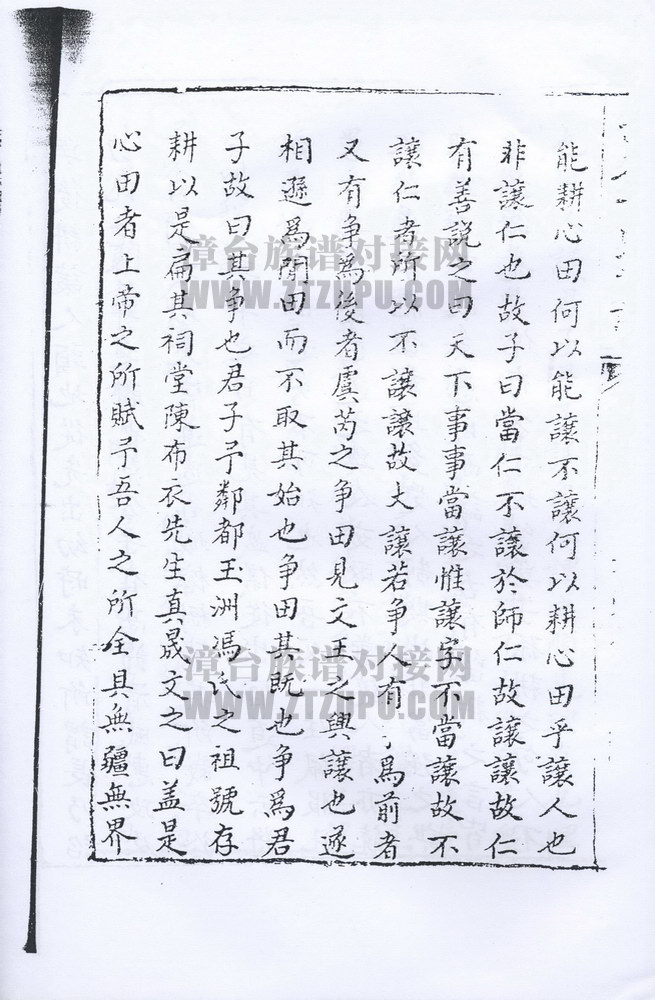 能耕心田何以能讓不讓何以耕心田乎讓人也
非讓仁也故子曰當仁不讓於師仁故讓讓故仁
有善說之曰天下事事當讓惟讓字不當讓故不
讓仁者所以不讓讓故大讓若争人有 爲前者
又有争爲後者虞芮之争田見文王之興讓也遂
相遜爲閒田而不取其始也争田其既也争爲君
子故曰其争也君子予鄰都王洲馮氏之祖號存
耕以是扁其祠堂陳布衣先生真晟文之曰盖是
心田者上帝之所賦予吾人之所全具無疆無界
漳台族谱对接网
WWW.ZTZUPU.COM
漳台族谱对接网
WWW.ZTZUPU.COM